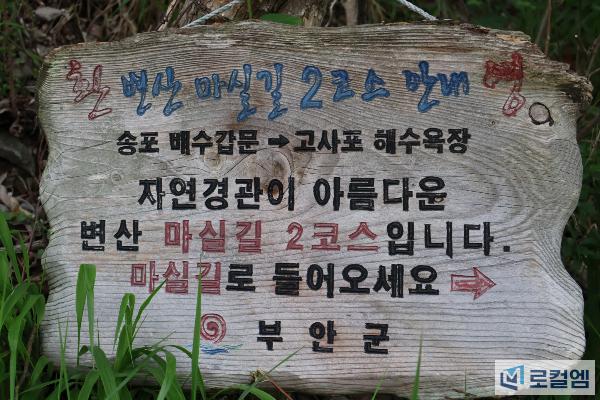 환 변산 마실길 2코스 안내 영
송포 배수갑문 → 고사포 해수욕장
자연경관이 아름다운
변산 마실길 2코스입니다.
마실길로 들어오세요 →
부안군
로컬엠